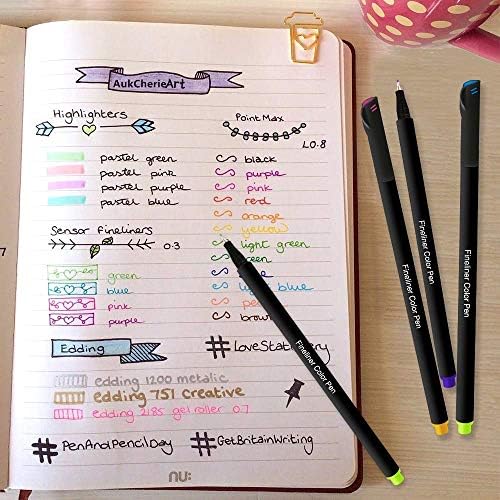 AukCherieArt
Highlighters
pastel green
pastel pink
pastel purple
pastel blue
Sensor Fineliners
0.3
green
blue
pink
purple
Point Max
L0.8
black
purple
pink
red
orange
yellow
light green
green
blue
brown
Edding
edding 1200 metalic
edding 751 creative
edding 2185 gel roller 0.7
#LoveStationery
#PenAndPencilDay
#GetBritainWriting
nu:
Fineliner Color Pen
Fineliner Color Pen
Fineliner Color Pen
Fineliner Color Pen
7